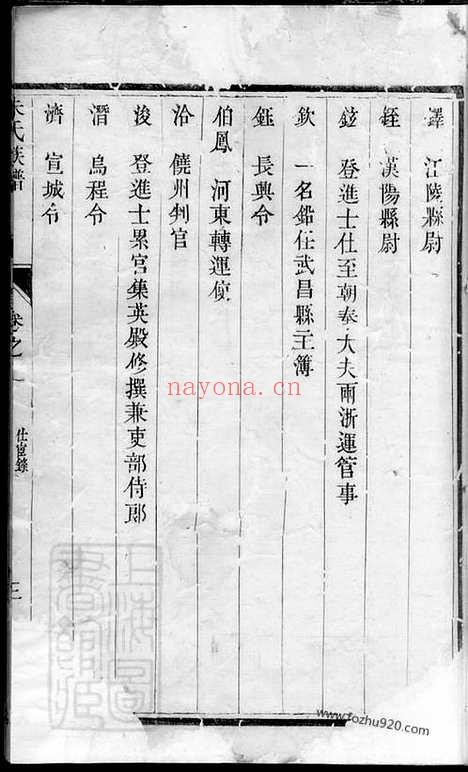 鐸　江陵縣尉
銍　漢陽縣尉
鉉　登進士仕至朝奉大夫兩浙運管事
欽　一名鉛任武昌縣主簿
鈺　長興令
伯鳳　河東轉運使
洽　饒州判官
浚　登進士累官集英殿修撰兼吏部侍郎
潛　烏程令
濟　宣城令
朱氏族譜
卷之
仕宦錄
三
nayona.cn
上海圖書館藏
www.fozhu920.com